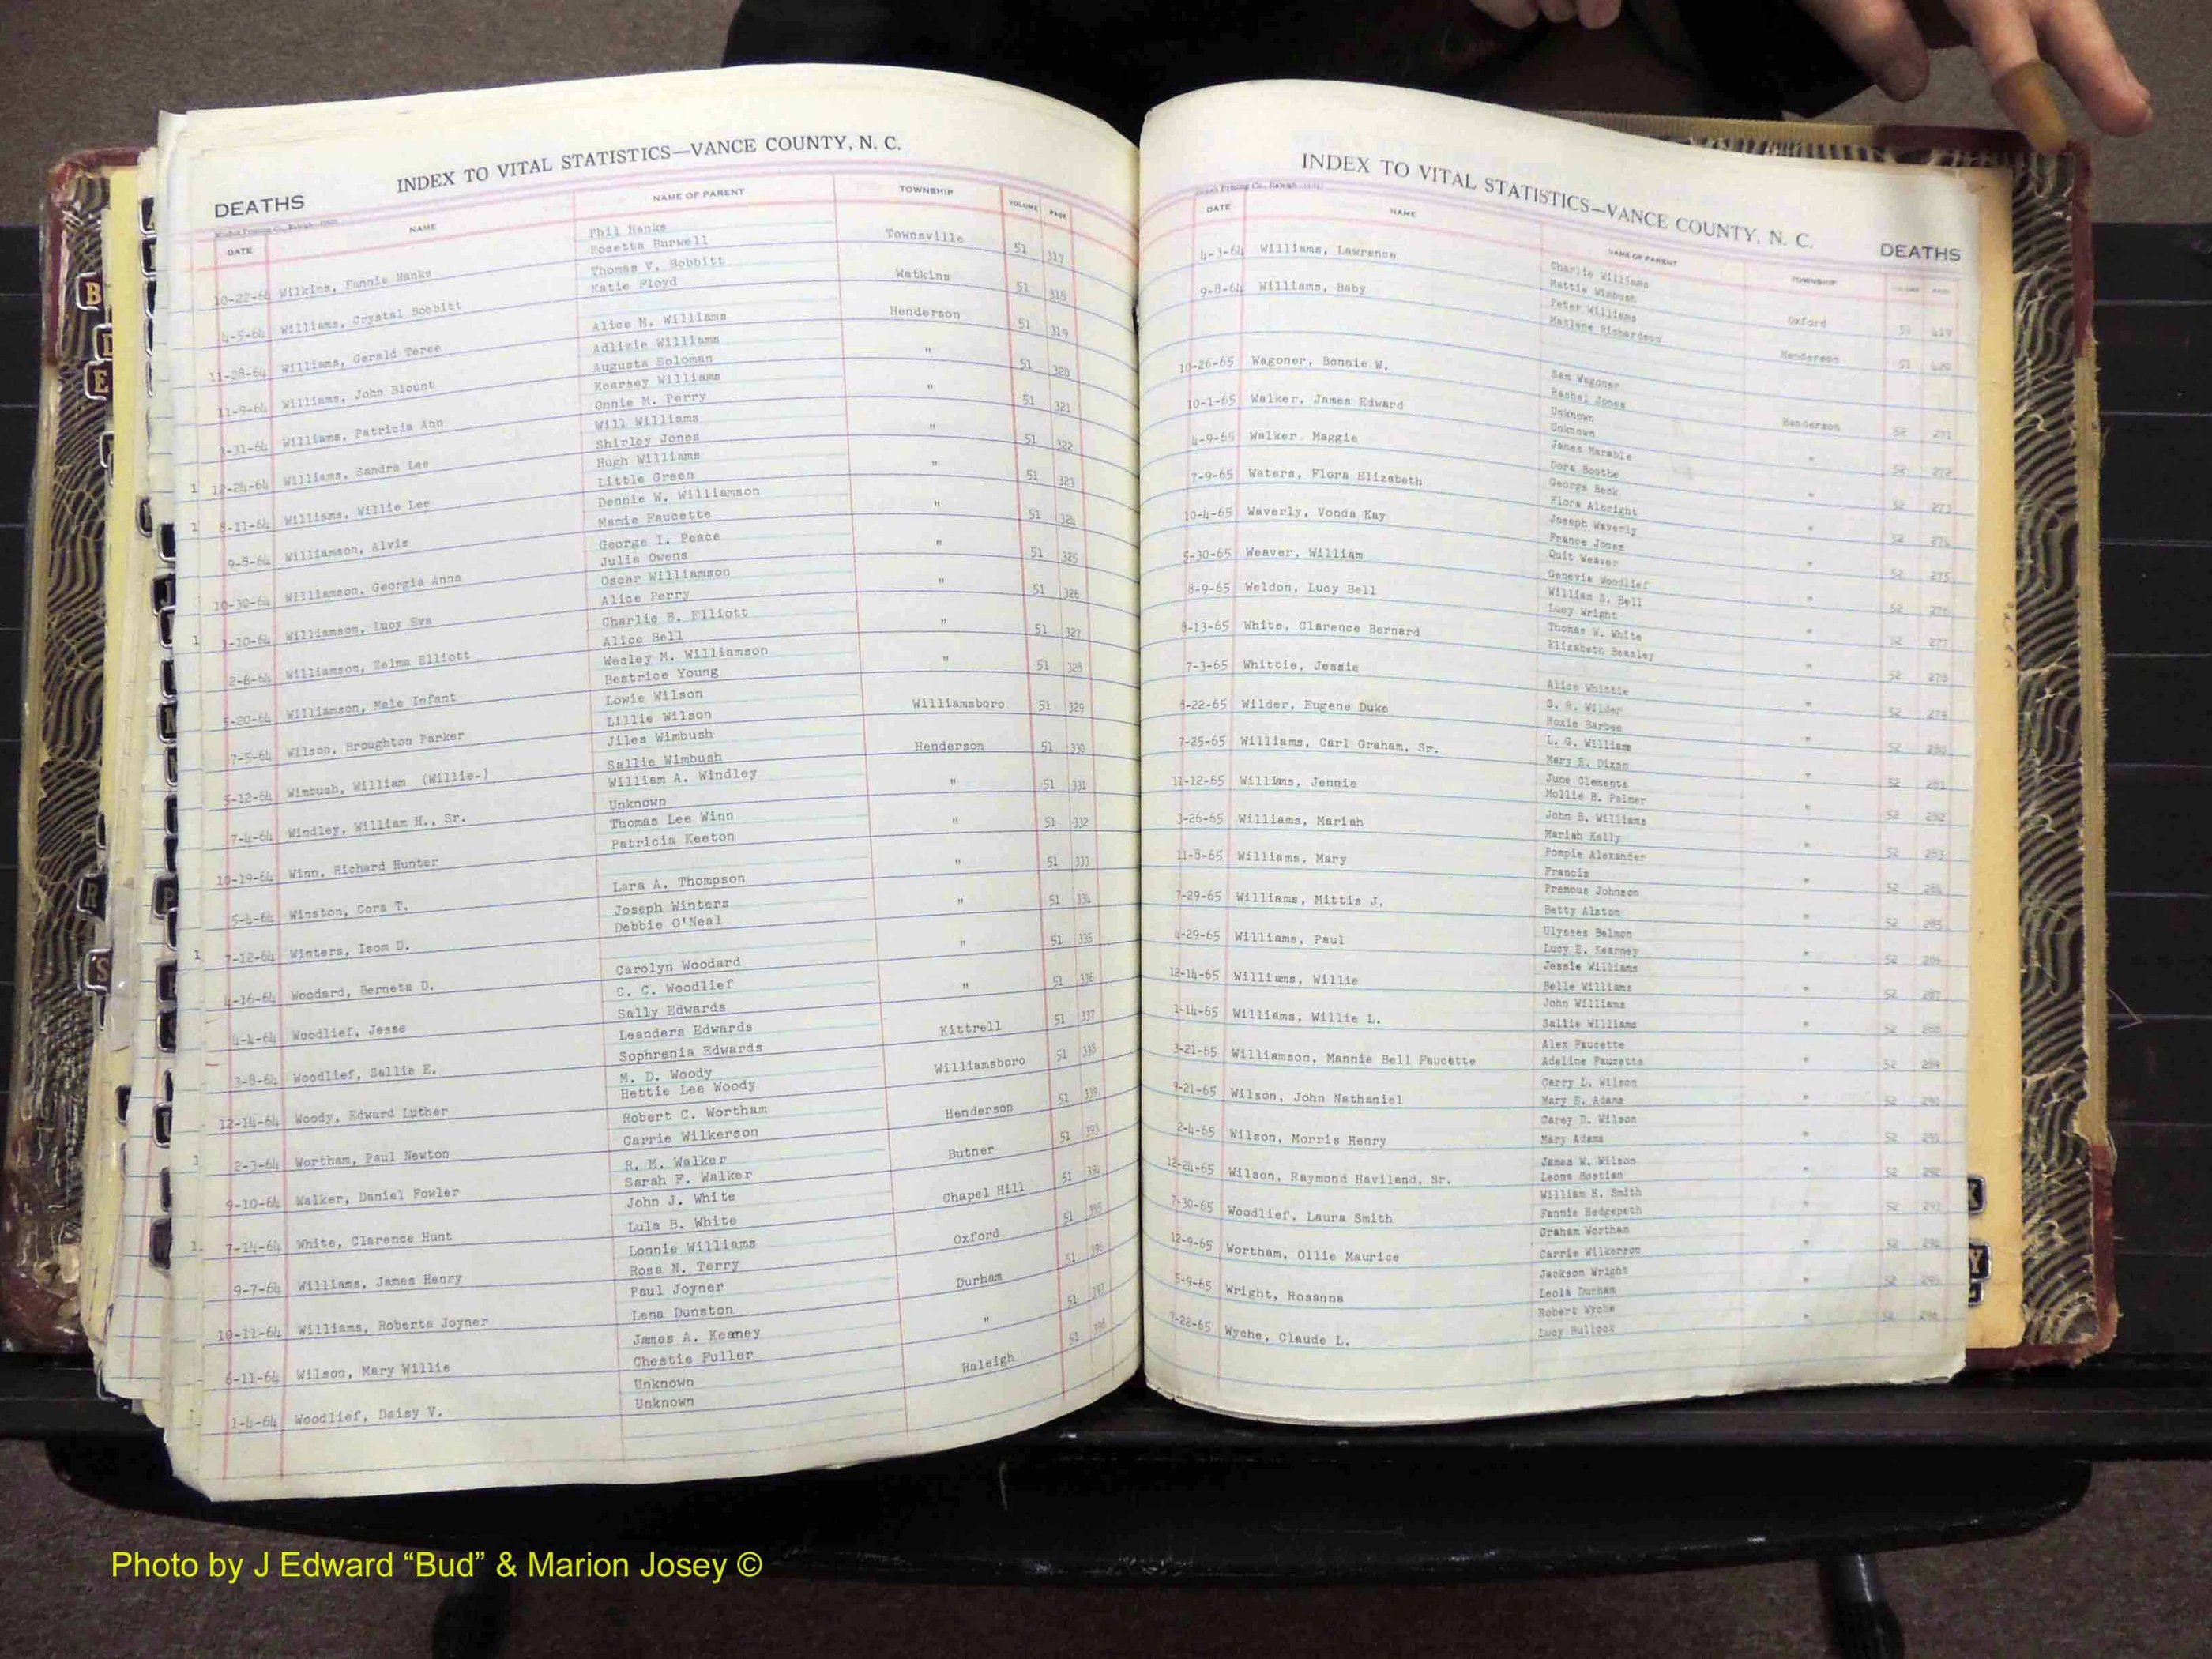 INDEX TO VITAL STATISTICS—VANCE COUNTY, N. C.
DEATHS
DATE NAME NAME OF PARENT TOWNSHIP VOLUME PAGE
Phil Hanks
10-22-64 Wilkins, Fannie Hanks Rosetta Burwell Townsville 51 317
Thomas V. Bobbitt
4-5-64 Williams, Crystal Bobbitt Katie Floyd Watkins 51 318
11-28-64 Williams, Gerald Teree Alice M. Williams Henderson 51 319
Adlizle Williams
11-9-64 Williams, John Blount Augusta Soloman " 51 320
Kearsey Williams
1-31-64 Williams, Patricia Ann Onnie M. Perry " 51 321
Will Williams
1 12-24-64 Williams, Sandra Lee Shirley Jones " 51 322
Hugh Williams
1 8-11-64 Williams, Willie Lee Little Green " 51 323
Dennie W. Williamson
9-8-64 Williamson, Alvis Mamie Faucette " 51 324
George I. Peace
10-30-64 Williamson, Georgia Anna Julia Owens " 51 325
Oscar Williamson
1 1-10-64 Williamson, Lucy Eva Alice Perry " 51 326
Charlie B. Elliott
2-6-64 Williamson, Zelma Elliott Alice Bell " 51 327
Wesley M. Williamson
5-20-64 Williamson, Male Infant Beatrice Young " 51 328
Lowie Wilson
7-5-64 Wilson, Broughton Parker Lillie Wilson Williamsboro 51 329
Jiles Wimbush
5-12-64 Wimbush, William (Willie-) Sallie Wimbush Henderson 51 330
William A. Windley
7-4-64 Windley, William H., Sr. Unknown " 51 331
Thomas Lee Winn
10-19-64 Winn, Richard Hunter Patricia Keeton " 51 332
5-4-64 Winston, Cora T. Lara A. Thompson " 51 333
Joseph Winters
1 7-12-64 Winters, Isom D. Debbie O'Neal " 51 334
4-16-64 Woodard, Berneta D. Carolyn Woodard " 51 335
C. C. Woodlief
4-4-64 Woodlief, Jesse Sally Edwards " 51 336
Leanders Edwards
3-8-64 Woodlief, Sallie E. Sophrenia Edwards Kittrell 51 337
M. D. Woody
12-14-64 Woody, Edward Luther Hettie Lee Woody Williamsboro 51 338
Robert C. Wortham
1 2-3-64 Wortham, Paul Newton Carrie Wilkerson Henderson 51 339
R. M. Walker
9-10-64 Walker, Daniel Fowler Sarah F. Walker Butner 51 393
John J. White
1 7-14-64 White, Clarence Hunt Lula B. White Chapel Hill 51 394
Lonnie Williams
9-7-64 Williams, James Henry Rosa N. Terry Oxford 51 395
Paul Joyner
10-11-64 Williams, Roberta Joyner Lena Dunston Durham 51 396
James A. Keaney
6-11-64 Wilson, Mary Willie Chestie Fuller " 51 397
Unknown
1-4-64 Woodlief, Daisy V. Unknown Raleigh 51 398
INDEX TO VITAL STATISTICS—VANCE COUNTY, N. C.
DEATHS
DATE NAME NAME OF PARENT TOWNSHIP
Charlie Williams
4-3-64 Williams, Lawrence Mattie Wimbush Oxford 51 419
Peter Williams
9-8-64 Williams, Baby Matlene Richardson Henderson 51 420
Sam Wagoner
10-26-65 Wagoner, Bonnie W. Rachel Jones Henderson 52 271
Unknown
10-1-65 Walker, James Edward Unknown " 52 272
James Marable
4-9-65 Walker. Maggie Dora Boothe " 52 273
George Beck
7-9-65 Waters, Flora Elizabeth Flora Albright " 52 274
Joseph Waverly
10-4-65 Waverly, Vonda Kay France Jones " 52 275
Quit Weaver
5-30-65 Weaver, William Genevia Woodlief " 52 276
William S. Bell
8-9-65 Weldon, Lucy Bell Lucy Wright " 52 277
Thomas W. White
8-13-65 White, Clarence Bernard Elizabeth Beasley " 52 278
7-3-65 Whittie, Jessie Alice Whittie " 52 279
S. R. Wilder
8-22-65 Wilder, Eugene Duke Roxie Barbee " 52 280
L. G. William
7-25-65 Williams, Carl Graham, Sr. Mary E. Dixon " 52 281
June Clements
11-12-65 Williams, Jennie Mollie B. Palmer " 52 282
John B. Williams
3-26-65 Williams, Mariah Mariah Kelly " 52 283
Pompie Alexander
11-8-65 Williams, Mary Francis " 52 284
Premous Johnson
7-29-65 Williams, Mittis J. Betty Alston " 52 285
Ulysses Belmon
4-29-65 Williams, Paul Lucy E. Kearney " 52 286
Jessie Williams
12-14-65 Williams, Willie Belle Williams " 52 287
John Williams
1-14-65 Williams, Willie L. Sallie Williams " 52 288
Alex Faucette
3-21-65 Williamson, Mannie Bell Faucette Adeline Faucette " 52 289
Carry L. Wilson
9-21-65 Wilson, John Nathaniel Mary E. Adams " 52 290
Carey D. Wilson
2-4-65 Wilson, Morris Henry Mary Adams " 52 291
James W. Wilson
12-24-65 Wilson, Raymond Haviland, Sr. Leona Bostian " 52 292
William H. Smith
7-30-65 Woodlief, Laura Smith Fannie Hedgepeth " 52 293
Graham Wortham
12-9-65 Wortham, Ollie Maurice Carrie Wilkerson " 52 294
Jackson Wright
5-9-65 Wright, Rosanna Leola Durham " 52 295
Robert Wyche
7-22-65 Wyche, Claude L. Lucy Bullock " 52 296
B
D
E
R
S
Y
Photo by J Edward “Bud” & Marion Josey ©